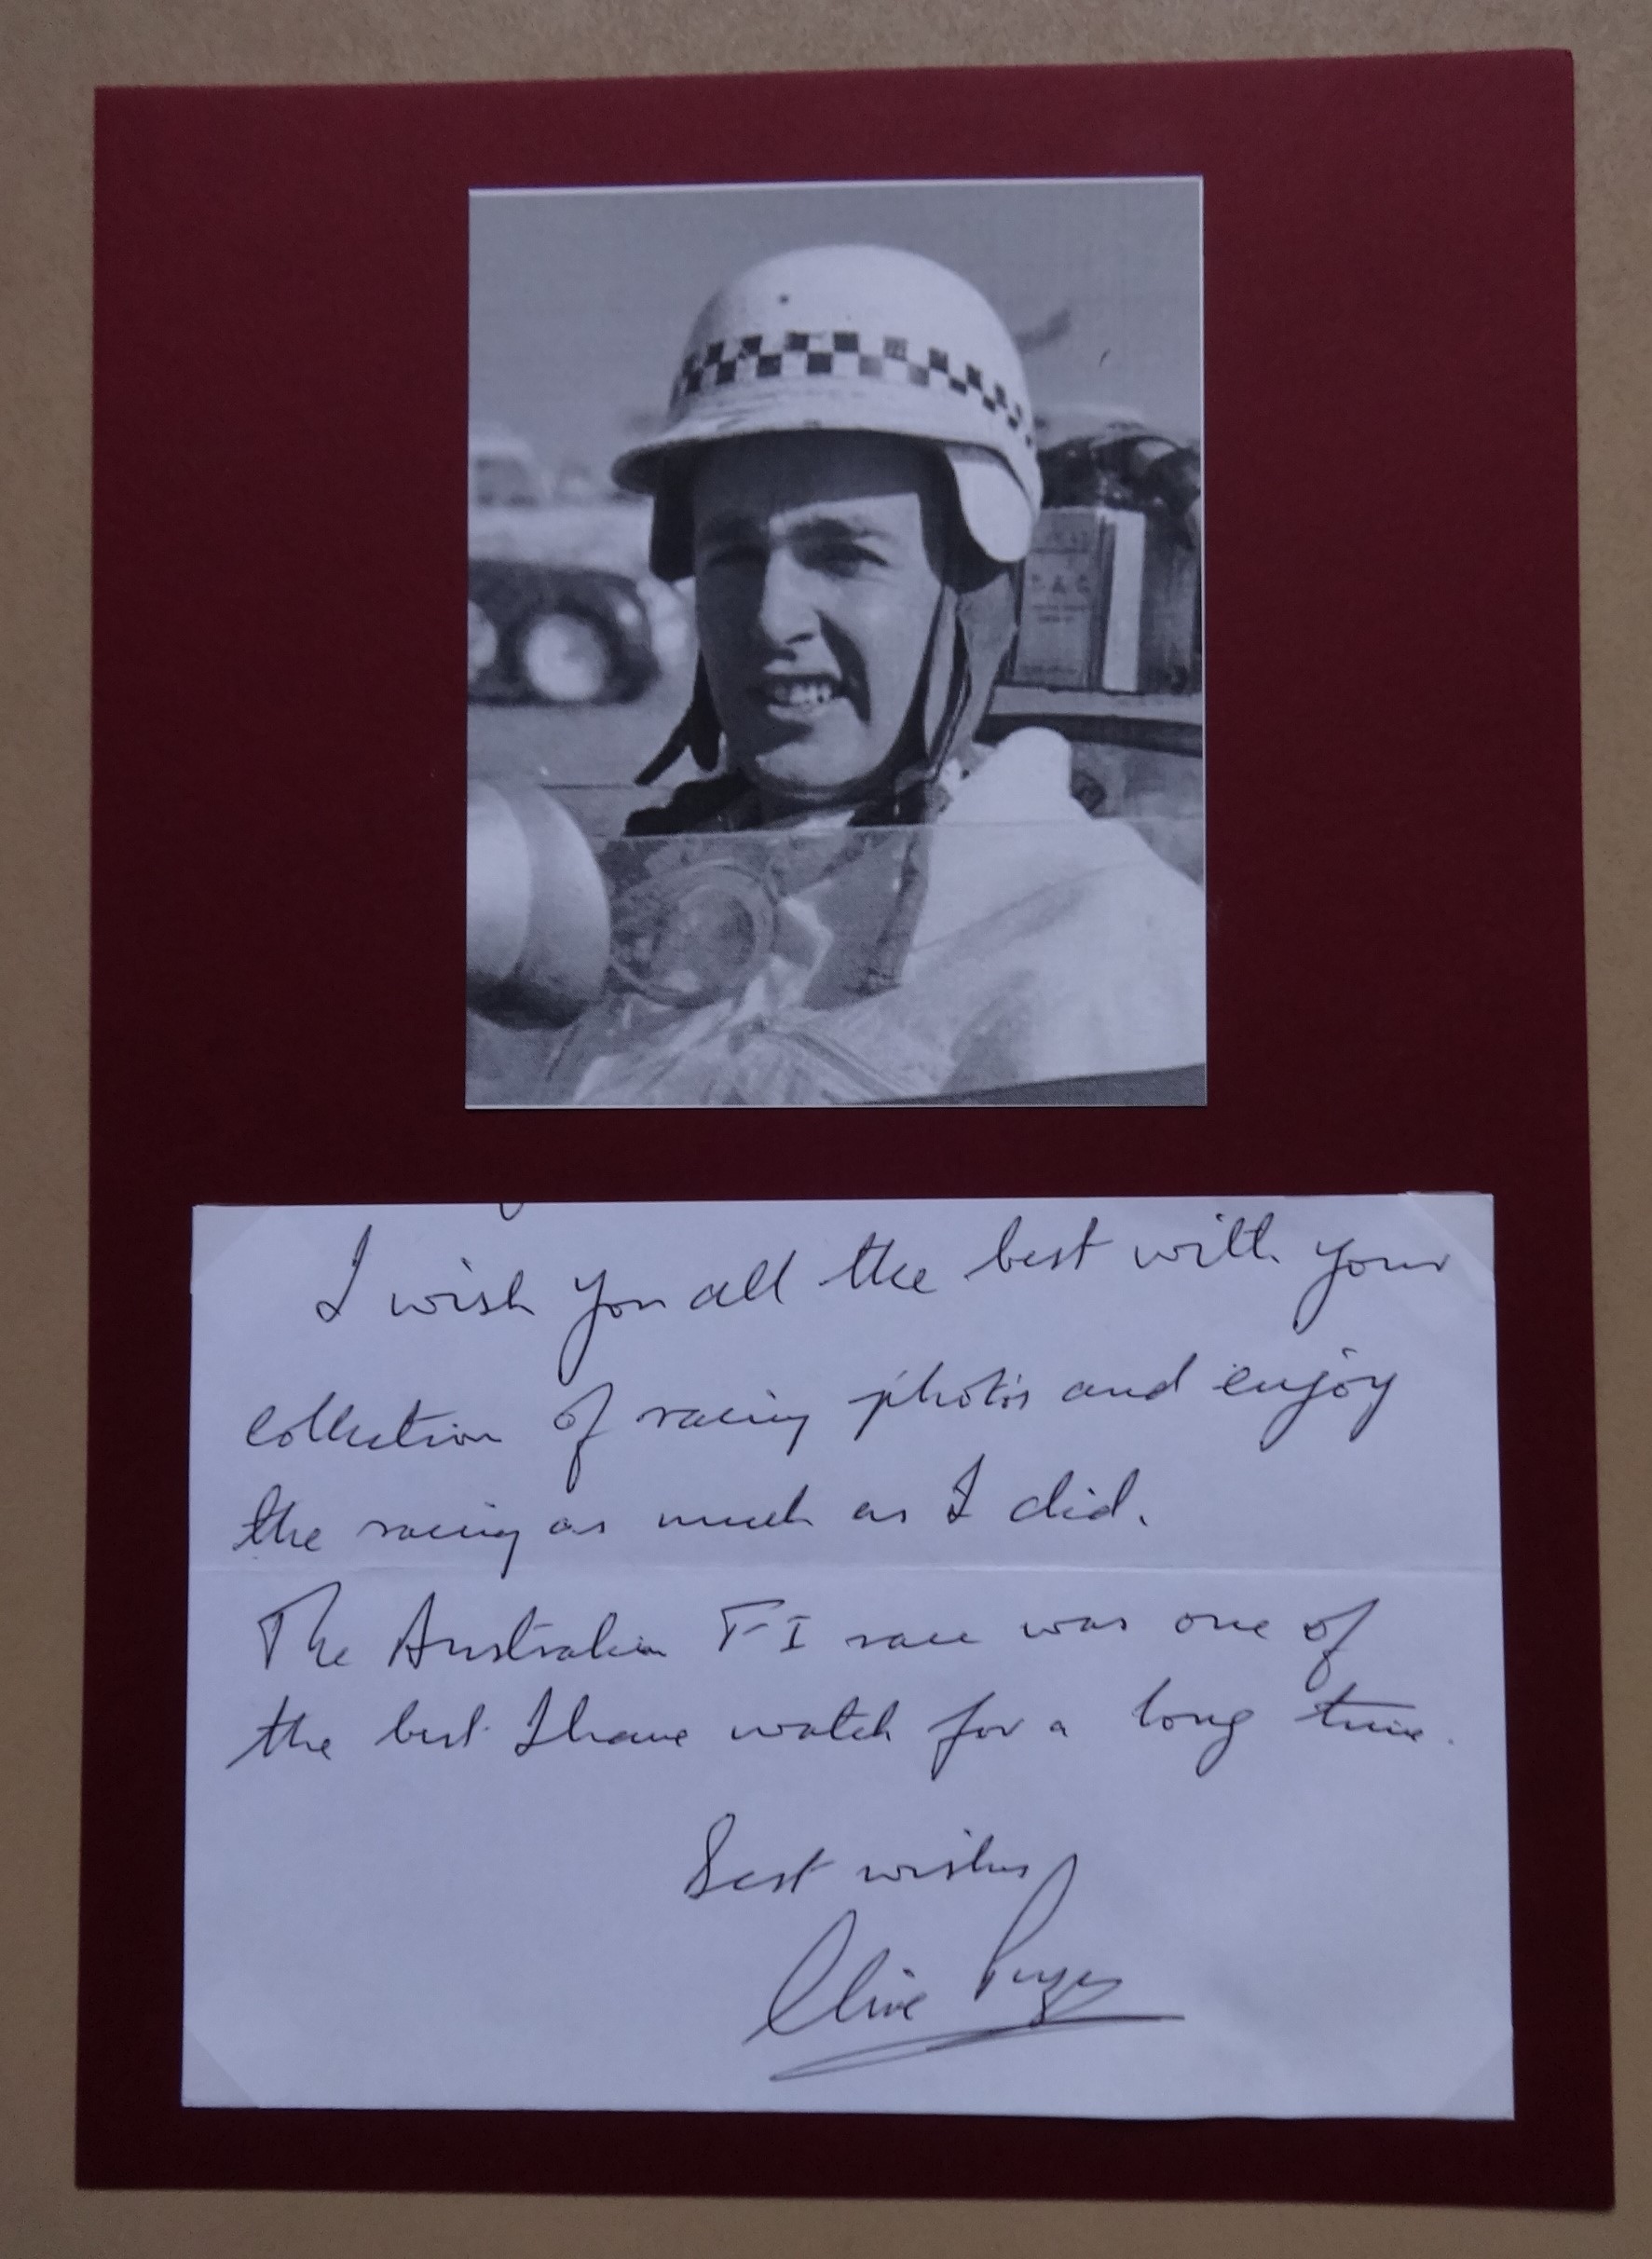 T. A. C
I wish you all the best with your
collection of racing photo's and enjoy
the racing as much as I did.
The Australian F I race was one of
the best I have watch for a long time.
Best wishes
Clive Puzey